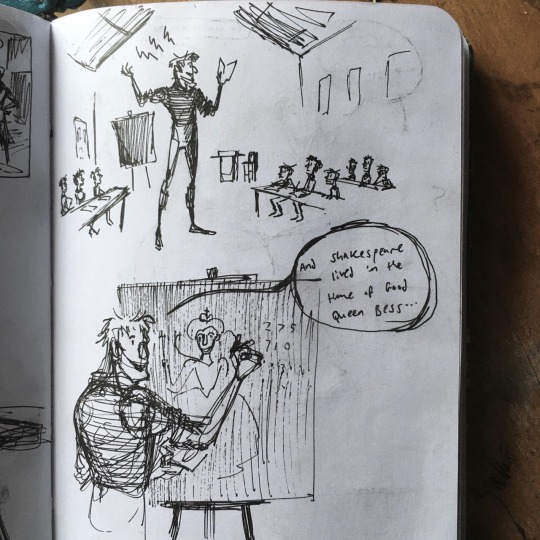 And Shakespeare
lived in the
time of Good
Queen Bess...
2 > 5
7 1 0